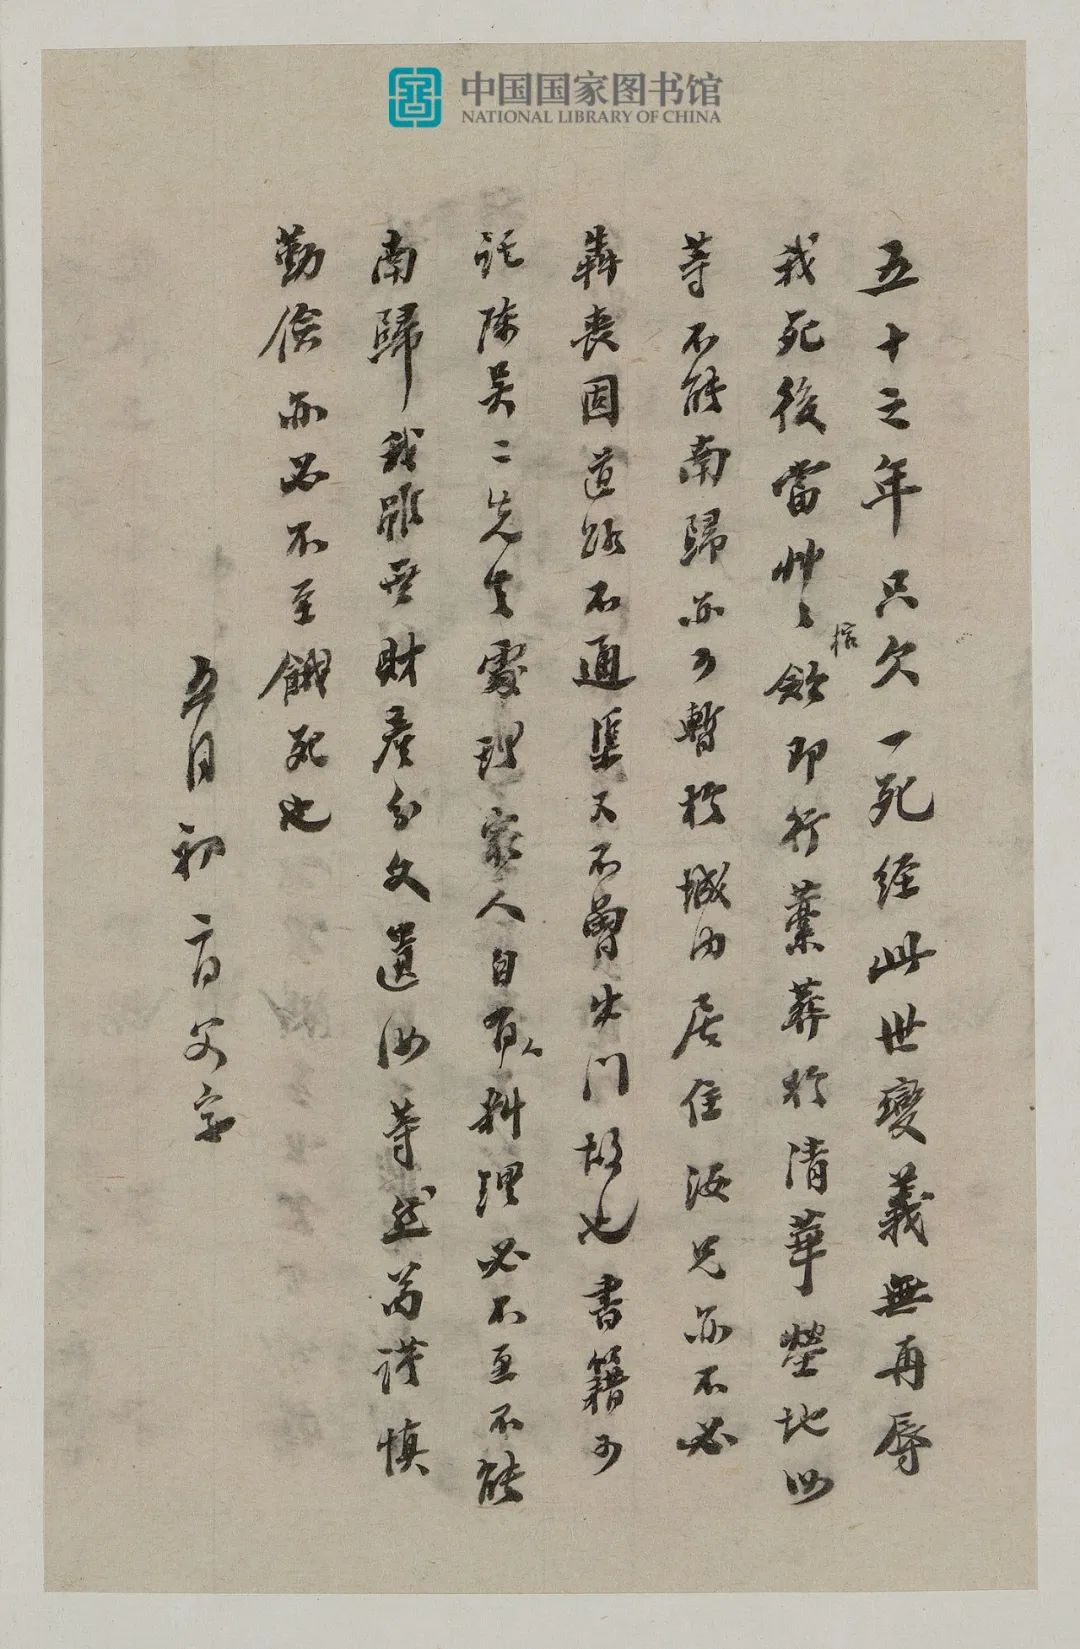 中国国家图书馆
NATIONAL LIBRARY OF CHINA
五十之年只欠一死经此世變義無再辱
我死後當草草棺歛即行藁葬於清華塋地汝
等不能南歸亦可暫於城内居住汝兄亦不必
犇喪因道路不通渠又不曾出门故也書籍可
託陳吴二先生處理家人自有人料理必不至不能
南歸我雖無財產分文遺汝等然苟謹慎
勤儉亦必不至餓死也
五月初二日父字